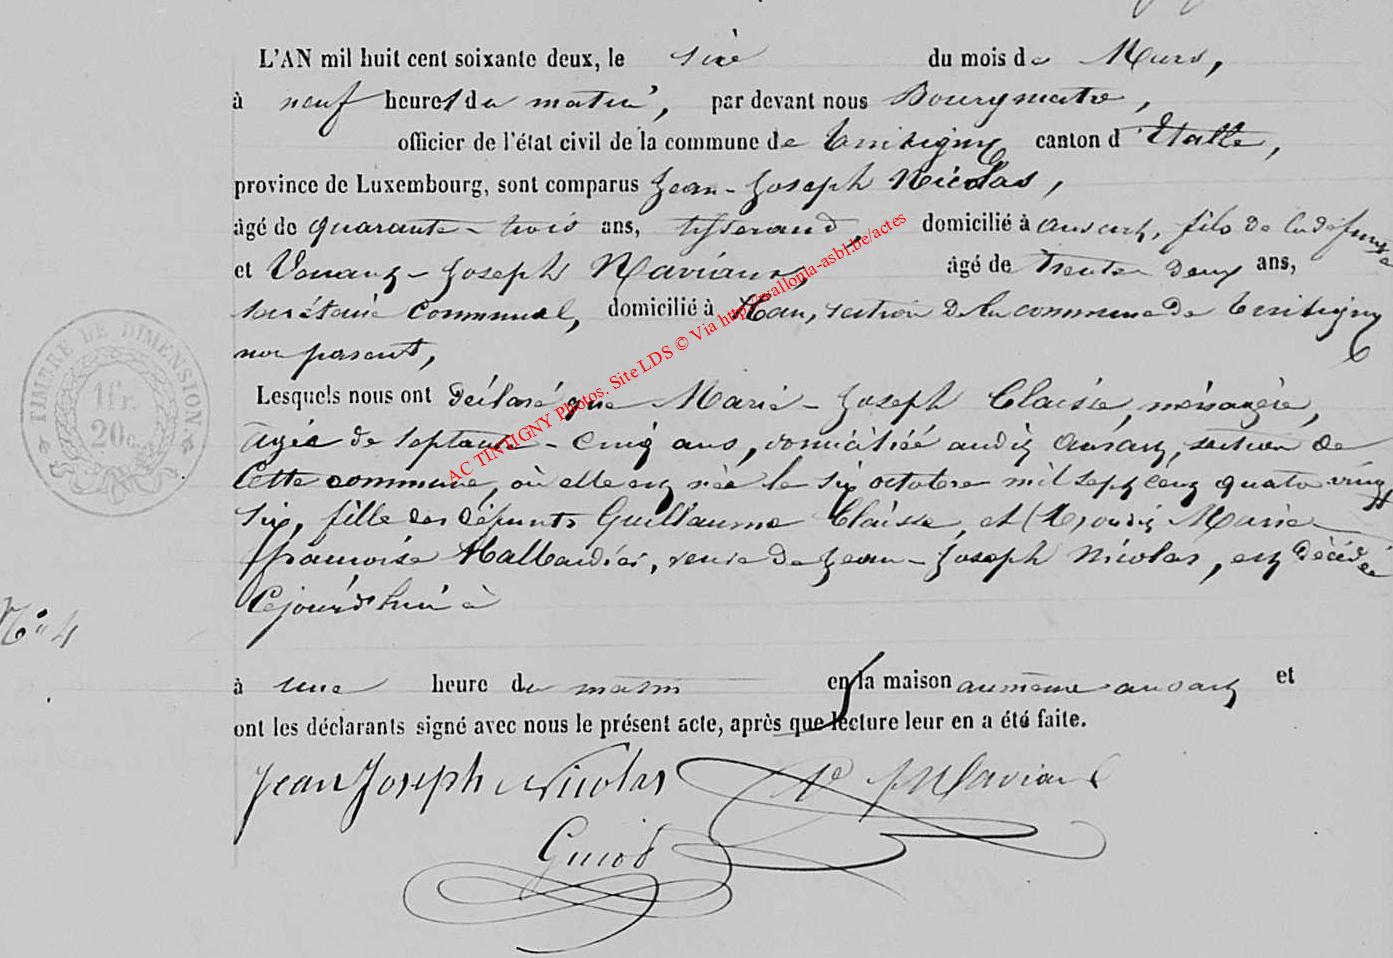 L'AN mil huit cent soixante deux, le six du mois de Mars,
à neuf heures du matin, par devant nous Bourgmestre,
officier de l'état civil de la commune de Tintigny canton d'Etalle,
province de Luxembourg, sont comparus Jean-Joseph Nicolas,
âgé de quarante-trois ans, tisserand, domicilié à ansart, fils de la défunte
et Venant-Joseph Naviaux, âgé de trente deux ans,
secrétaire communal, domicilié à han, section de la commune de Tintigny
non parent,
Lesquels nous ont déclaré que Marie-Joseph Claisse, ménagère,
agée de septante-cinq ans, domiciliée audit ansart, section de
cette commune, où elle est née le six octobre mil sept cent quatre vingt
six, fille des défunts Guillaume Claisse, et Marie
françoise, veuve de Jean-Joseph Nicolas, est décédée
cejourd'hui à
N° 4
à une heure du matin en la maison au même ansart et
ont les déclarants signé avec nous le présent acte, après que lecture leur en a été faite.
Jean Joseph Nicolas
Guiot
TIMBRE DE DIMENSION
1fr.
20c.
AC TINTIGNY Photos. Site LDS © Via http://wallonia-asbl.be/actes